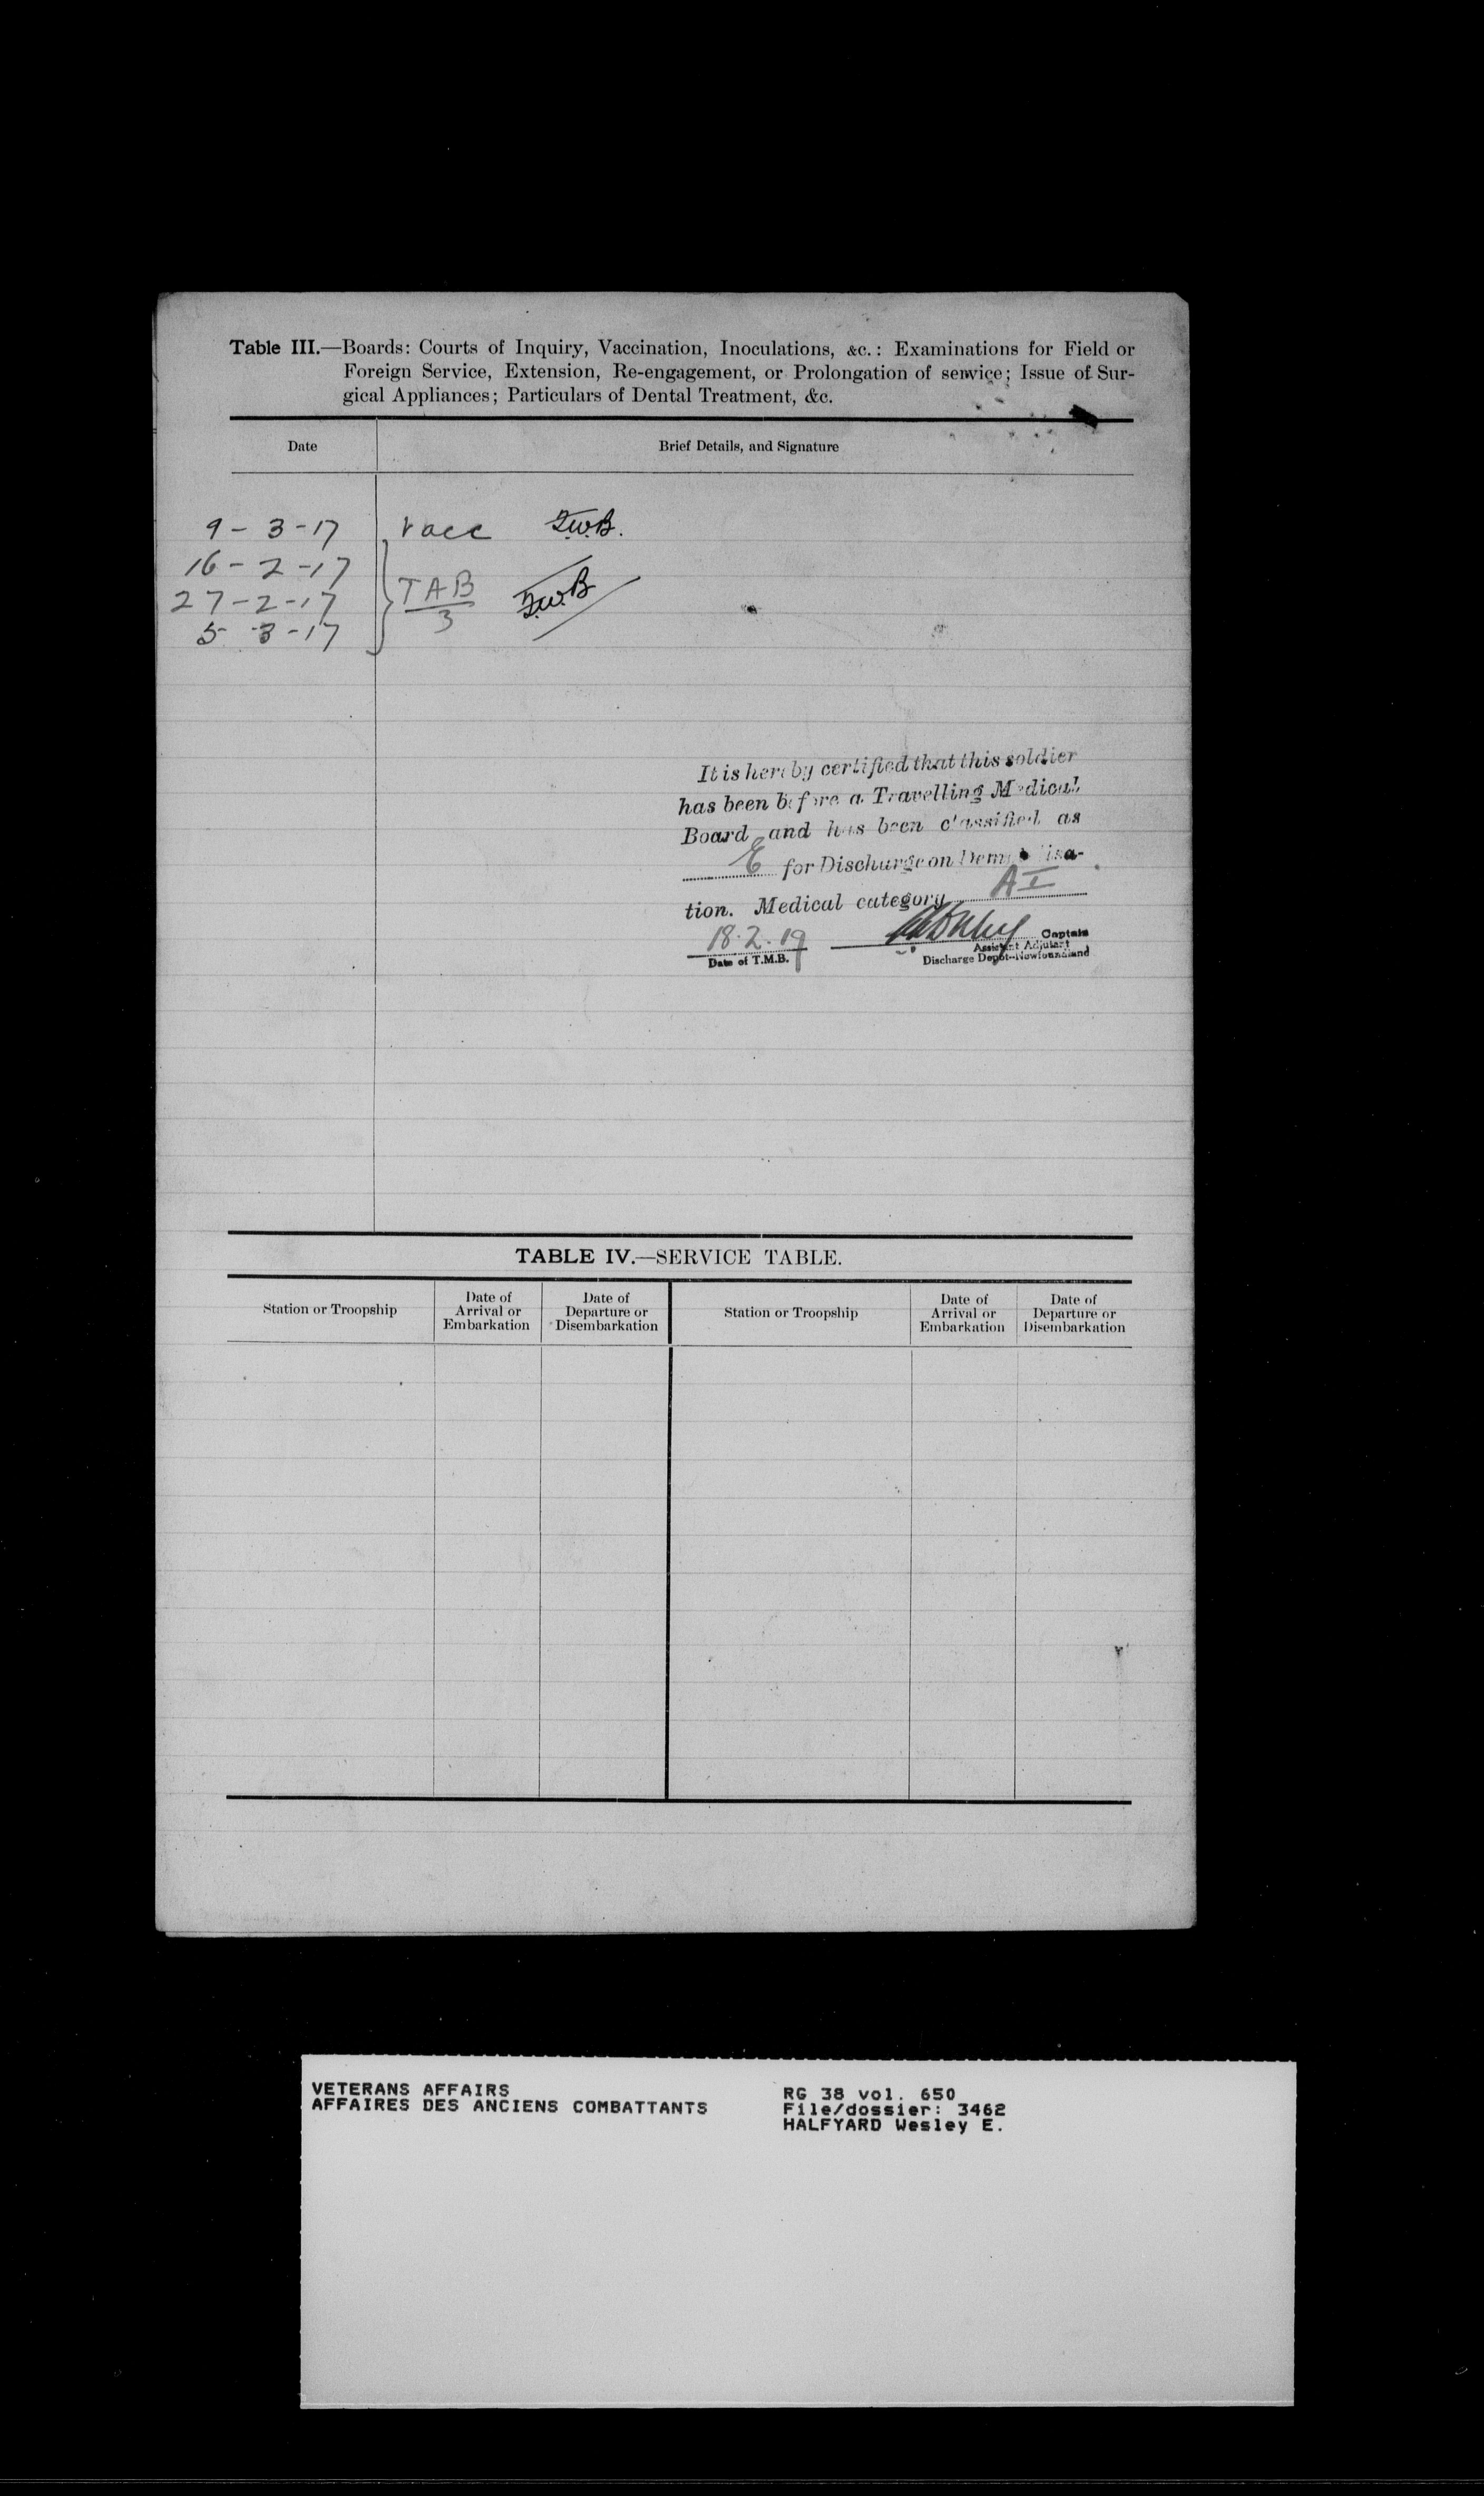 Table III.—Boards: Courts of Inquiry, Vaccination, Inoculations, &c.: Examinations for Field or
Foreign Service, Extension, Re-engagement, or Prolongation of service; Issue of Sur-
gical Appliances; Particulars of Dental Treatment, &c.
Date Brief Details, and Signature
9-3-17 Vacc F.W.B.
16-2-17
27-2-17 TAB F.W.B
3
5 3-17
It is hereby certified that this soldier
has been before a Travelling Medical
Board and has been classified as
E for Discharge on Demobilisa-
tion. Medical category A I
18.2.19 Captain
Assistant Adjutant
Date of T.M.B. Discharge Depot--Newfoundland
TABLE IV.—SERVICE TABLE.
Station or Troopship Date of Arrival or Embarkation Date of Departure or Disembarkation Station or Troopship Date of Arrival or Embarkation Date of Departure or Disembarkation
VETERANS AFFAIRS RG 38 vol. 650
AFFAIRES DES ANCIENS COMBATTANTS File/dossier: 3462
HALFYARD Wesley E.